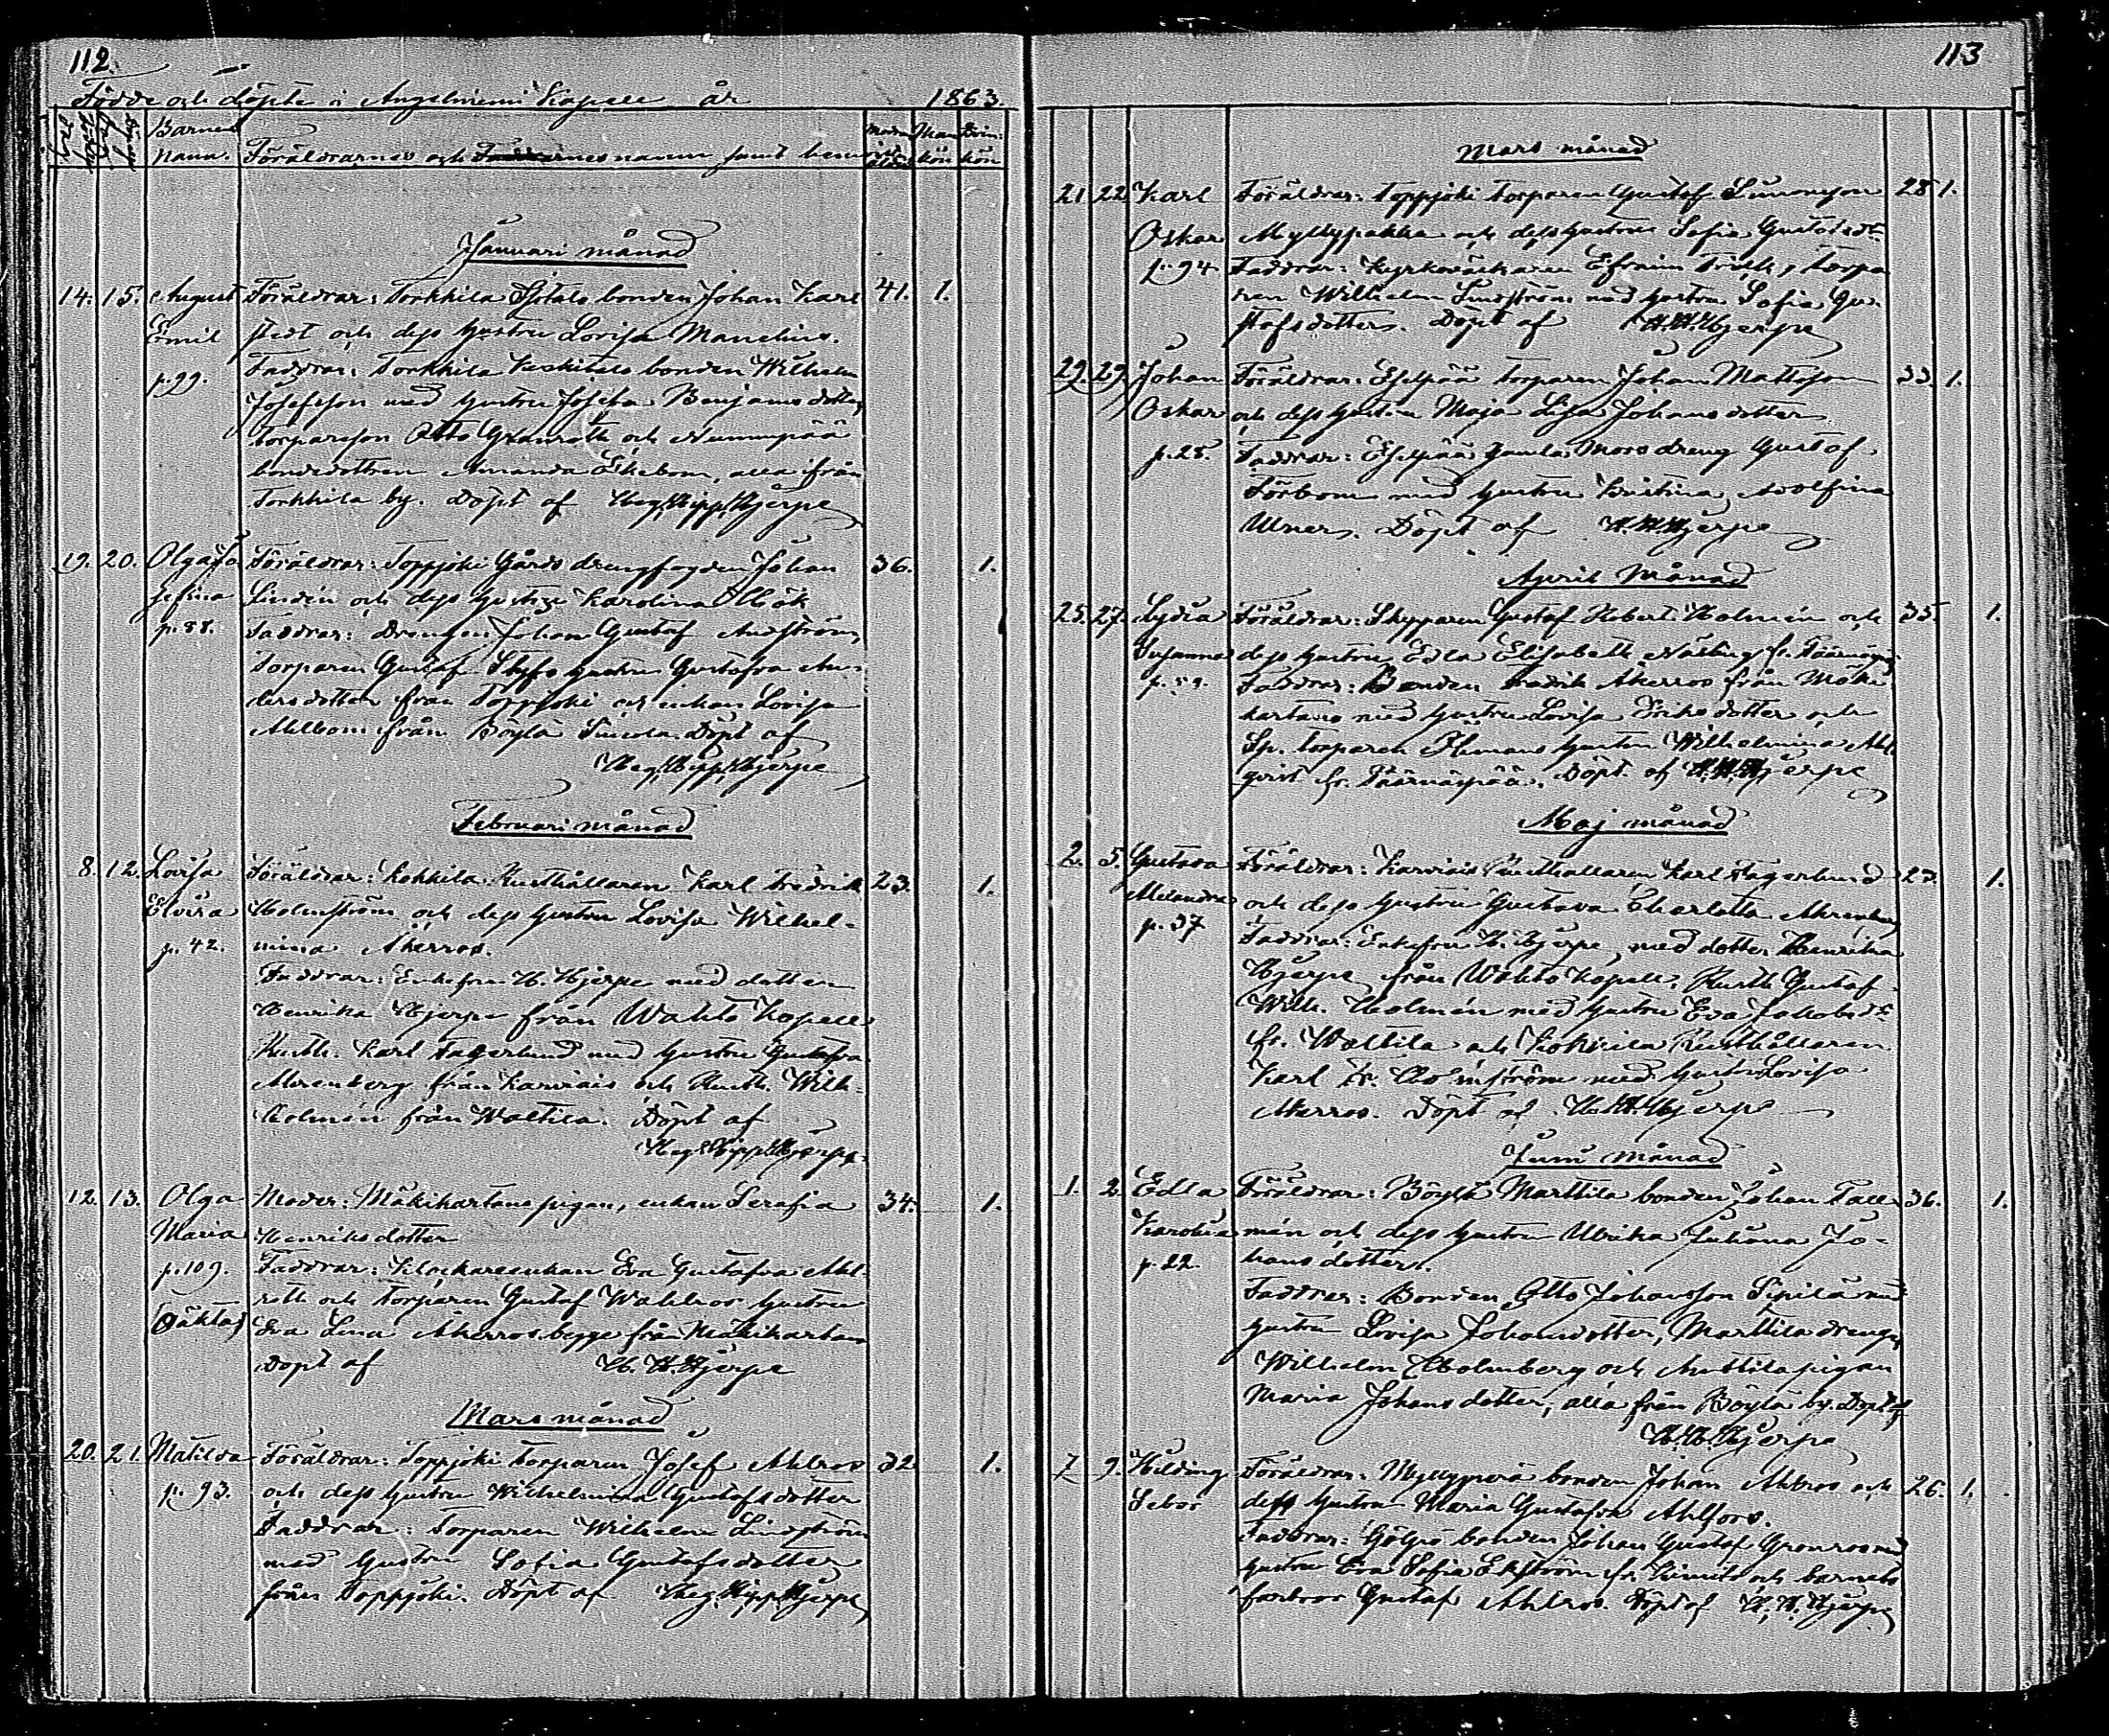 112.
Födde och döpte i Angelniemi Kapell år 1863.
Barnens namn. Föräldrarnes och Faddernes namn samt hemvist Modrens ålder Mankön Qvinkön
Januari månad
14. 15. August Föräldrar: Torkkila Ylötalo bonden Johan Karl 41. 1.
Emil stedt och dess hustru Lovisa Manelius.
p. 99. Faddrar: Torkkila Keskitalo bonden Wilhelm
Josefsson med hustru Josefa Benjamsdotter,
torparson Otto Granroth och Nummipää
bondedottren Amanda Ekebom, alla ifrån
Torkkila by. Döpt af Heg. Hipp. Hjerpe
19. 20. Olga Jo Föräldrar: Toppjoki Gårds drengfogden Johan 36. 1.
sefina Lindén och dess hustru Karolina Höök
p. 88. Faddrar: Drengen Johan Gustaf Andström,
Torparen Gustaf hustru Gustafva An
dersdotter från Toppjoki och enkan Lovisa
Ahlbom från Böylä Döpt af
Heg. Hipp. Hjerpe
Februari månad
8. 12. Lovisa Föräldrar: Kokkila Rusthållaren Karl Fredrik 23. 1.
Elvira Holmström och dess hustru Lovisa Wilhel-
p. 42. mina Åkerros.
Faddrar: Enkefru H. Hjerpe med dotter
Henrika Hjerpe från Wahto Kapell
Rusth. Karl Fagerlund med hustru Gustafva
Ahrenberg från Karviais och Rusth. Wilh.
Holmén från Waltila. Döpt af
Heg. Hipp. Hjerpe
12. 13. Olga Moder: Mäkikartano pigan, enkan Serafia 34. 1.
Maria Henriksdotter
p. 109. Faddrar: Klockareenkan Eva Gustafva Ahl-
(Oäkta) roth och torparen Gustaf Wahlros hustru
Eva Lena Åkerros begge från Mäkikartano
Döpt af H. H. Hjerpe
Mars månad
20. 21. Matilda Föräldrar: Toppjoki torparen Josef Ahlros 32. 1.
p. 93. och dess hustru Wilhelmina Gustafsdotter
Faddrar: Torparen Wilhelm Lindström
med hustru Sofia Gustafsdotter
från Toppjoki. Döpt af Heg. Hipp. Hjerpe
113
Mars månad
21. 22. Karl Föräldrar: Toppjoki torparen Gustaf Simonsson 28 1.
Oskar Myllypakka och dess hustru Sofia Gustafsdtr
p. 94. Faddrar: Kyrkoväktaren Efraim torpa
ren Wilhelm Lindström med hustru Sofia Gu-
stafsdotter. Döpt af H. H. Hjerpe
29. 29. Johan Föräldrar: Isopää torparen Johan Mattsson 33. 1.
Oskar och dess hustru Maja Lisa Johansdotter
p. 28. Faddrar: gamla dreng Gustaf
Törbom med hustru Kristina Adolfina
Ulner. Döpt af H. H. Hjerpe
April Månad
25. 27. Lydia Föräldrar: Skepparen Gustaf Robert Holmén och 35. 1.
Susanna dess hustru Edla Elisabeth Näsling fr. Päärnäspää
p. 59. Faddrar: Bonden Fredrik Åkerros från Mäki
kartano med hustru Lovisa Eriksdotter och
Sp. torparen hustru Wilhelmina Ahl
qvist fr. Päärnäspää. Döpt af H. H. Hjerpe
Maj månad
2. 5. Gustava Föräldrar: Karviais Rusthållaren Karl Fagerlund 27. 1.
Melandra och dess hustru Gustava Charlotta Ahrenberg
p. 37 Faddrar: Enkefru H. Hjerpe, med dotter Henrika
Hjerpe från Wahto Kapell, Rusth. Gustaf
Wilh. Holmén med hustru Eva Jakobsdtr
fr. Waltila och Kokkila Rusthållaren
Karl Fr. Holmström med hustru Lovisa
Åkerros. Döpt af H. H. Hjerpe
Juni månad
1. 2. Edla Föräldrar: Böylä Marttila bonden Johan Tall 36. 1.
Karolina mén och dess hustru Ulrika Juliana Jo-
p. 22. hansdotter.
Faddrar: Bonden Otto Johansson Sipilä med
hustru Lovisa Johansdotter, Marttila drengen
Wilhelm Holmberg och Anttila pigan
Maria Johansdotter, alla från Böylä by. Döpt af
H. H. Hjerpe
7 9. Hilding Föräldrar: Myllyperä bonden Johan Ahlros och 26. 1.
dess hustru Maria Gustafva Ahlfors.
Faddrar: bonden Johan Gustaf Grönroos med
hustru Eva Sofia Ekström fr. Kimito och barnets
farbror Gustaf Ahlros. Döpt af H. H. Hjerpe